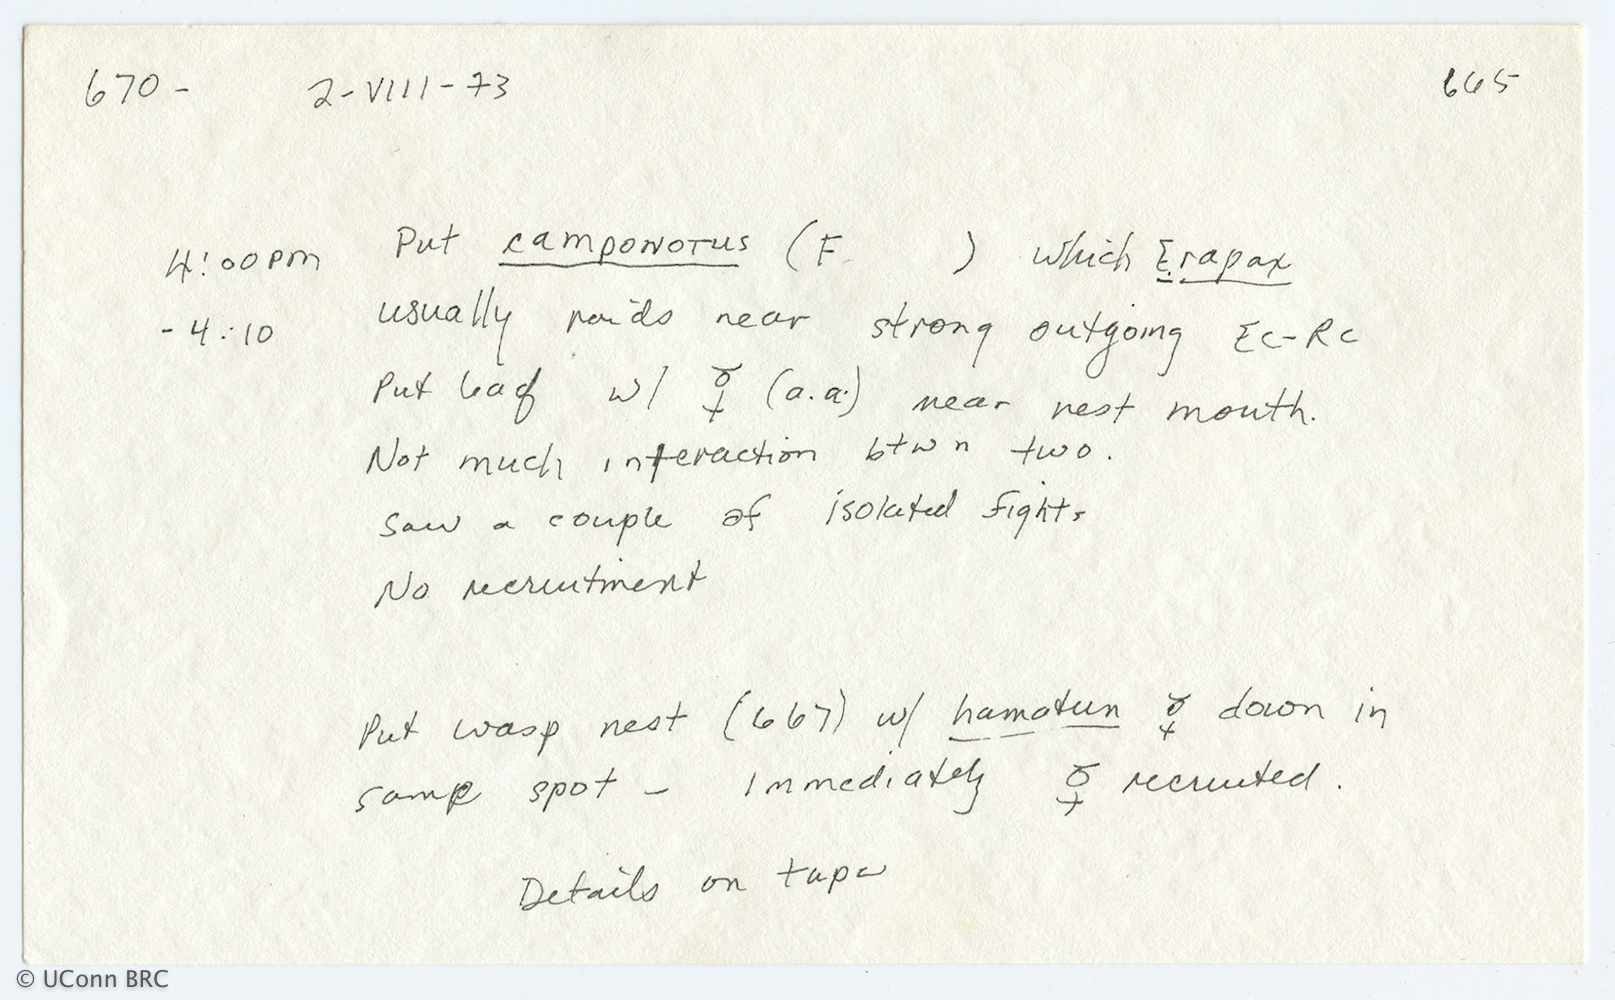 670 - 2-VIII-73 665
4:00pm Put camponotus (F. ) which E. rapax
- 4:10 usually raids near strong outgoing Ec-Rc
Put leaf w/ ☿ (a.a.) near nest mouth.
Not much interaction btwn two.
Saw a couple of isolated fights
No recruitment
Put wasp nest (667) w/ hamatum ☿ down in
same spot - Immediately ☿ recruited.
Details on tape
© UConn BRC